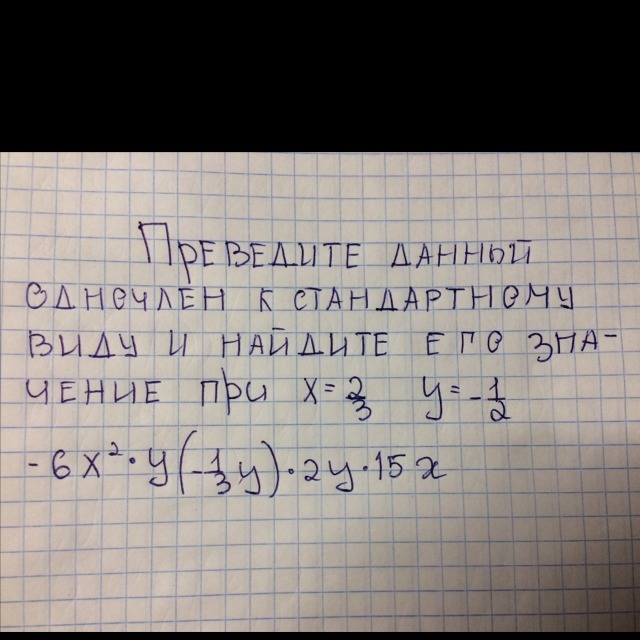 Преведите данный
одночлен к стандартному
виду и найдите его зна-
чение при x=2/3 y=-1/2
-6x²·y(-1/3y)·2y·15x